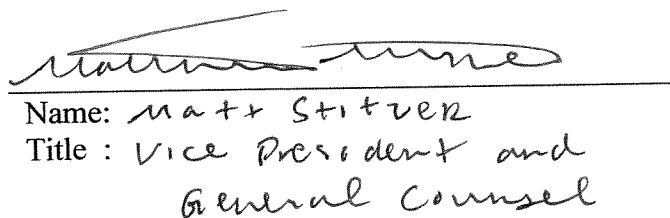 Name: Matt Stitzer
Title : Vice President and
General Counsel